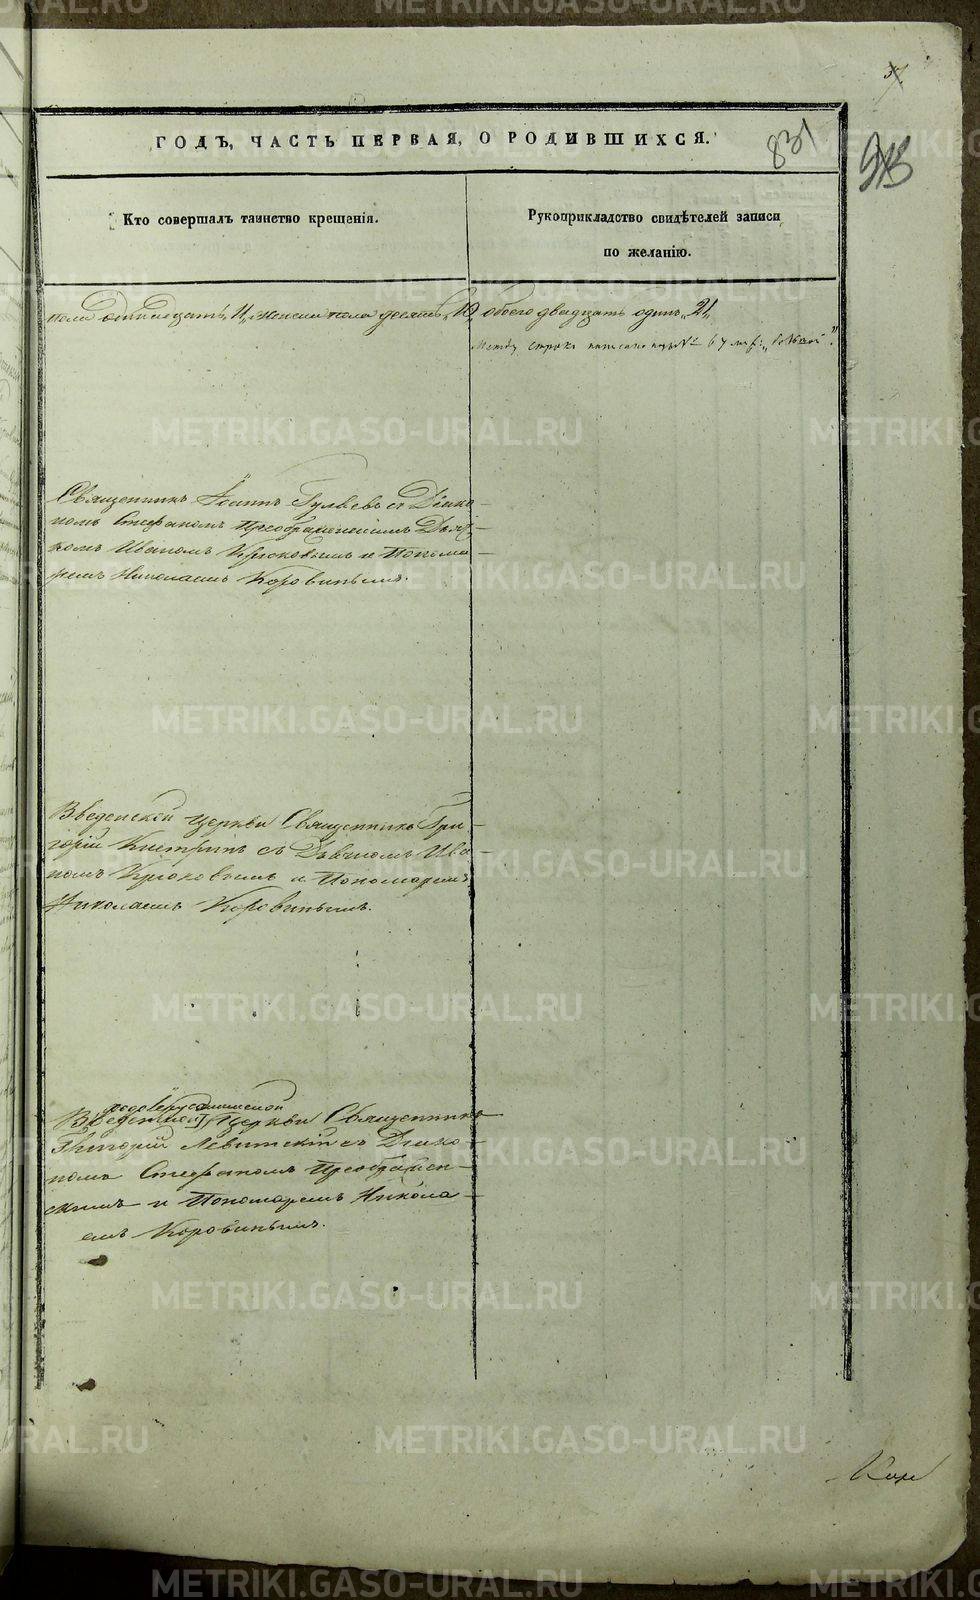 ГОДЪ, ЧАСТЬ ПЕРВАЯ, О РОДИВШИХСЯ.
831
Кто совершалъ таинство крещенія.
Рукоприкладство свидѣтелей записи
по желанію.
пола одинадцать „11„ женска пола десять „10„ обоего двадцать одинъ „21„
Между строкъ написано
Священникъ Іоаннъ Гуляевъ съ Діако-
номъ Стефаномъ Преображенскимъ Дьяч-
комъ Иваномъ Крюковымъ и Понома-
ремъ Николаемъ Коровинымъ.
Введенской церкви Священникъ Гри-
горій Кистринъ съ Дьячкомъ Ива-
номъ Крюковымъ и Пономаремъ
Николаемъ Коровинымъ.
Введенской церкви Священникъ
Григорій Левитскій съ Діако-
номъ Стефаномъ Преображен-
скимъ и Пономаремъ Никола-
емъ Коровинымъ.
METRIKI.GASO-URAL.RU